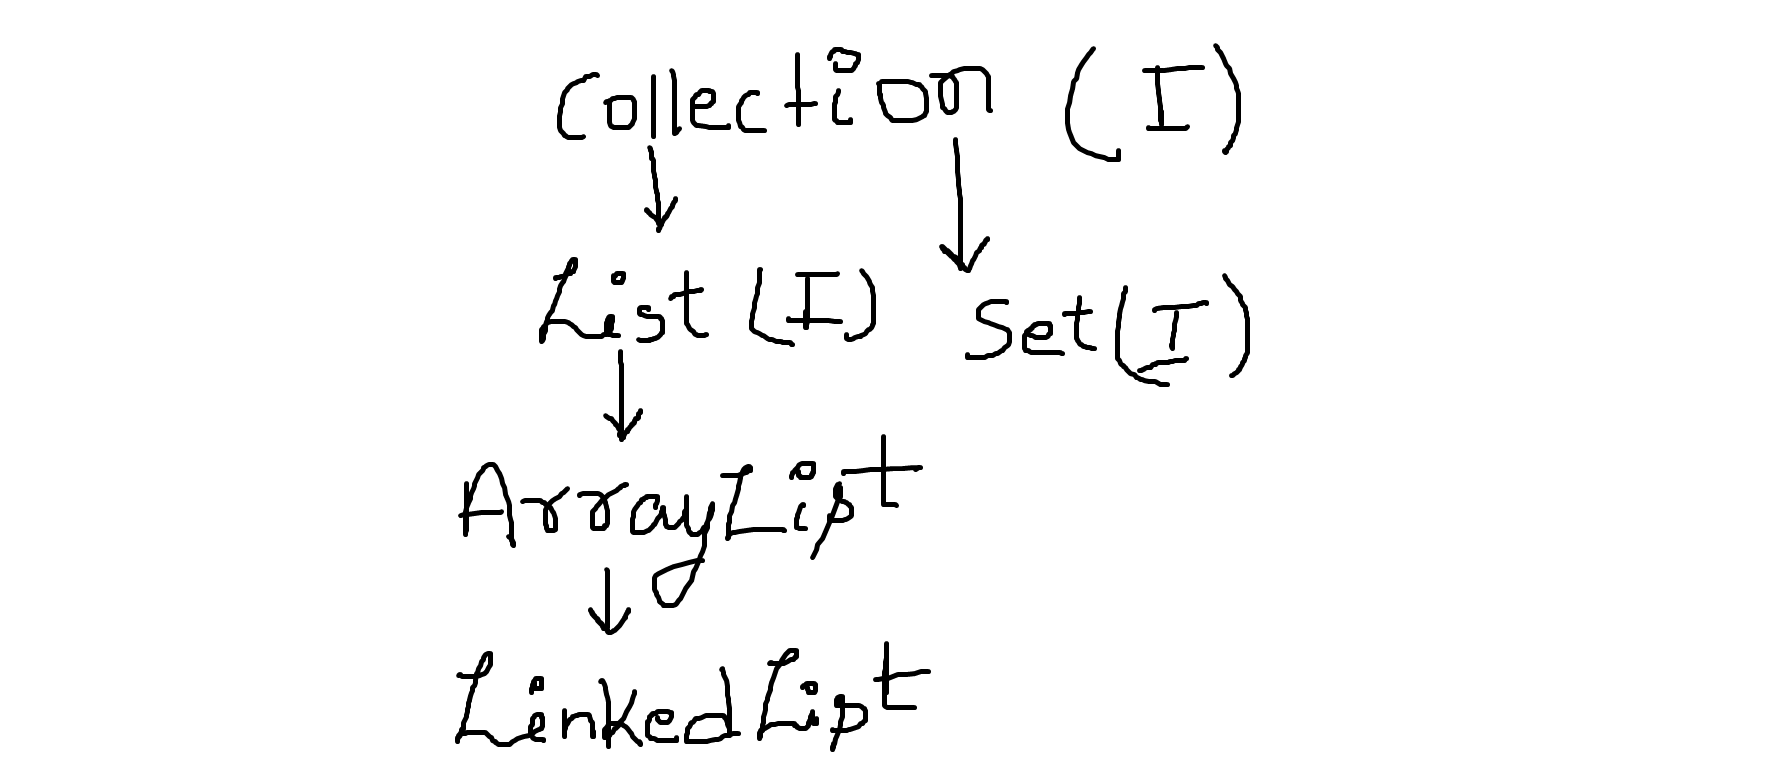 Collection (I)
List (I) Set (I)
ArrayList
LinkedList